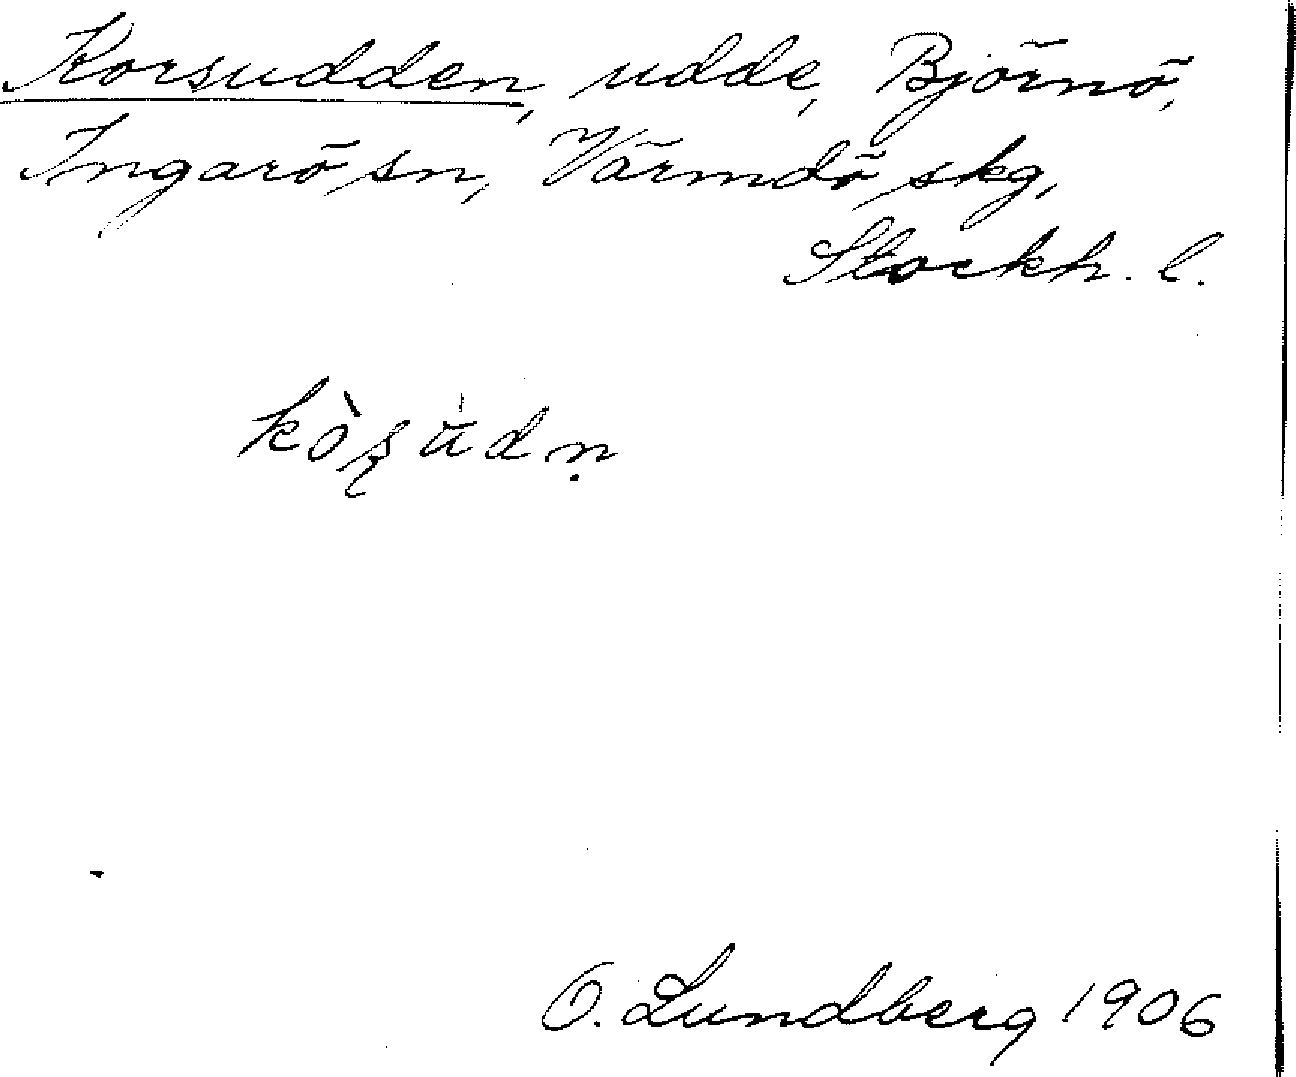 Korsudden, udde, Björnö,
Ingarö sn, Värmdö skg,
Stockh. l.
kòʂùdṇ
O. Lundberg 1906